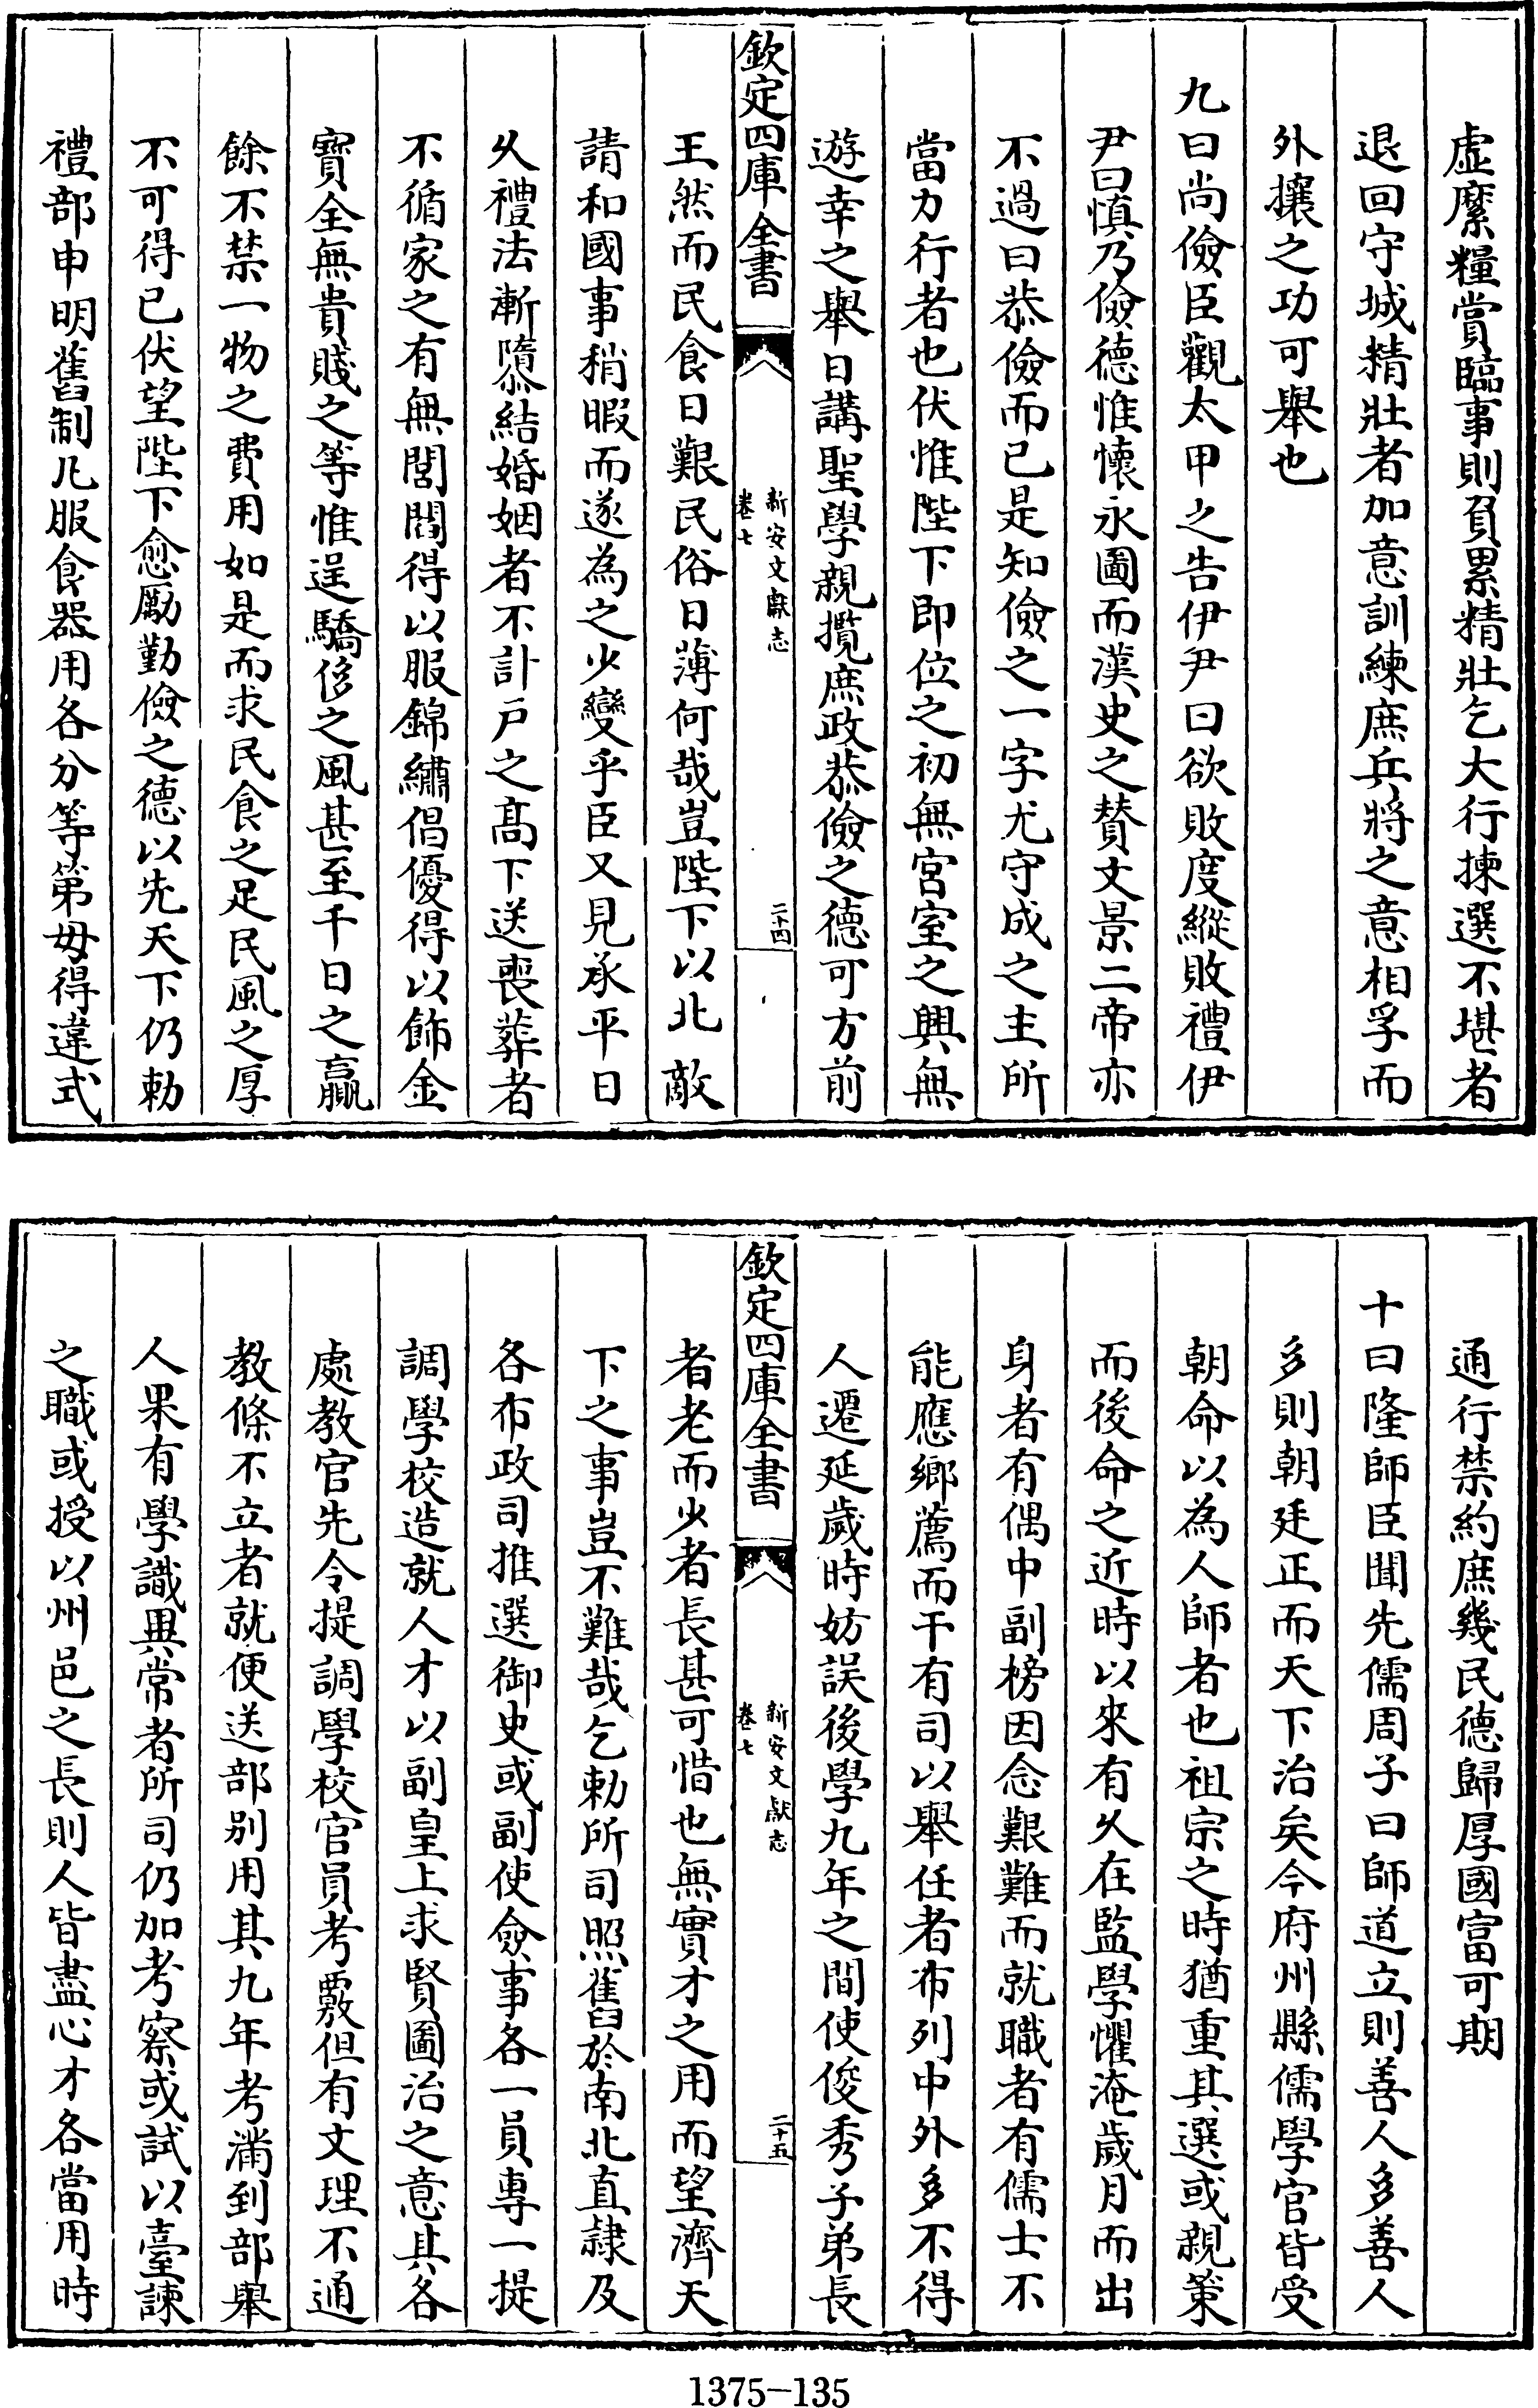 虛縻糧賞臨事則負累精壯乞大行揀選不堪者
退回守城精壯者加意訓練庶兵將之意相孚而
外攘之功可舉也
九曰尚儉臣觀太甲之告伊尹曰欲敗度縱敗禮伊
尹曰慎乃儉德惟懷永圖而漢史之賛文景二帝亦
不過曰恭儉而已是知儉之一字尤守成之主所
當力行者也伏惟陛下即位之初無宮室之興無
遊幸之舉日講聖學親攬庶政恭儉之德可方前
欽定四庫全書
新安文獻志
卷七
二十四
王然而民食日艱民俗日薄何哉豈陛下以北敵
請和國事稍暇而遂為之少變乎臣又見承平日
乆禮法漸隳結婚姻者不計戶之髙下送喪葬者
不循家之有無閭閻得以服錦繡倡優得以飾金
寶全無貴賤之等惟逞驕侈之風甚至千日之贏
餘不禁一物之費用如是而求民食之足民風之厚
不可得已伏望陛下愈勵勤儉之德以先天下仍勅
禮部申明舊制凡服食器用各分等第毋得違式
通行禁約庶幾民德歸厚國富可期
十曰隆師臣聞先儒周子曰師道立則善人多善人
多則朝廷正而天下治矣今府州縣儒學官皆受
朝命以為人師者也祖宗之時猶重其選或親策
而後命之近時以來有乆在監學懼淹歲月而出
身者有偶中副榜因念艱難而就職者有儒士不
能應鄉薦而干有司以舉任者布列中外多不得
人遷延歲時妨誤後學九年之間使俊秀子弟長
欽定四庫全書
新安文獻志
卷七
二十五
者老而少者長甚可惜也無實才之用而望濟天
下之事豈不難哉乞勅所司照舊於南北直隸及
各布政司推選御史或副使僉事各一員專一提
調學校造就人才以副皇上求賢圖治之意其各
處教官先令提調學校官員考覈但有文理不通
教條不立者就便送部别用其九年考滿到部舉
人果有學識異常者所司仍加考察或試以臺諫
之職或授以州邑之長則人皆盡心才各當用時
1375-135